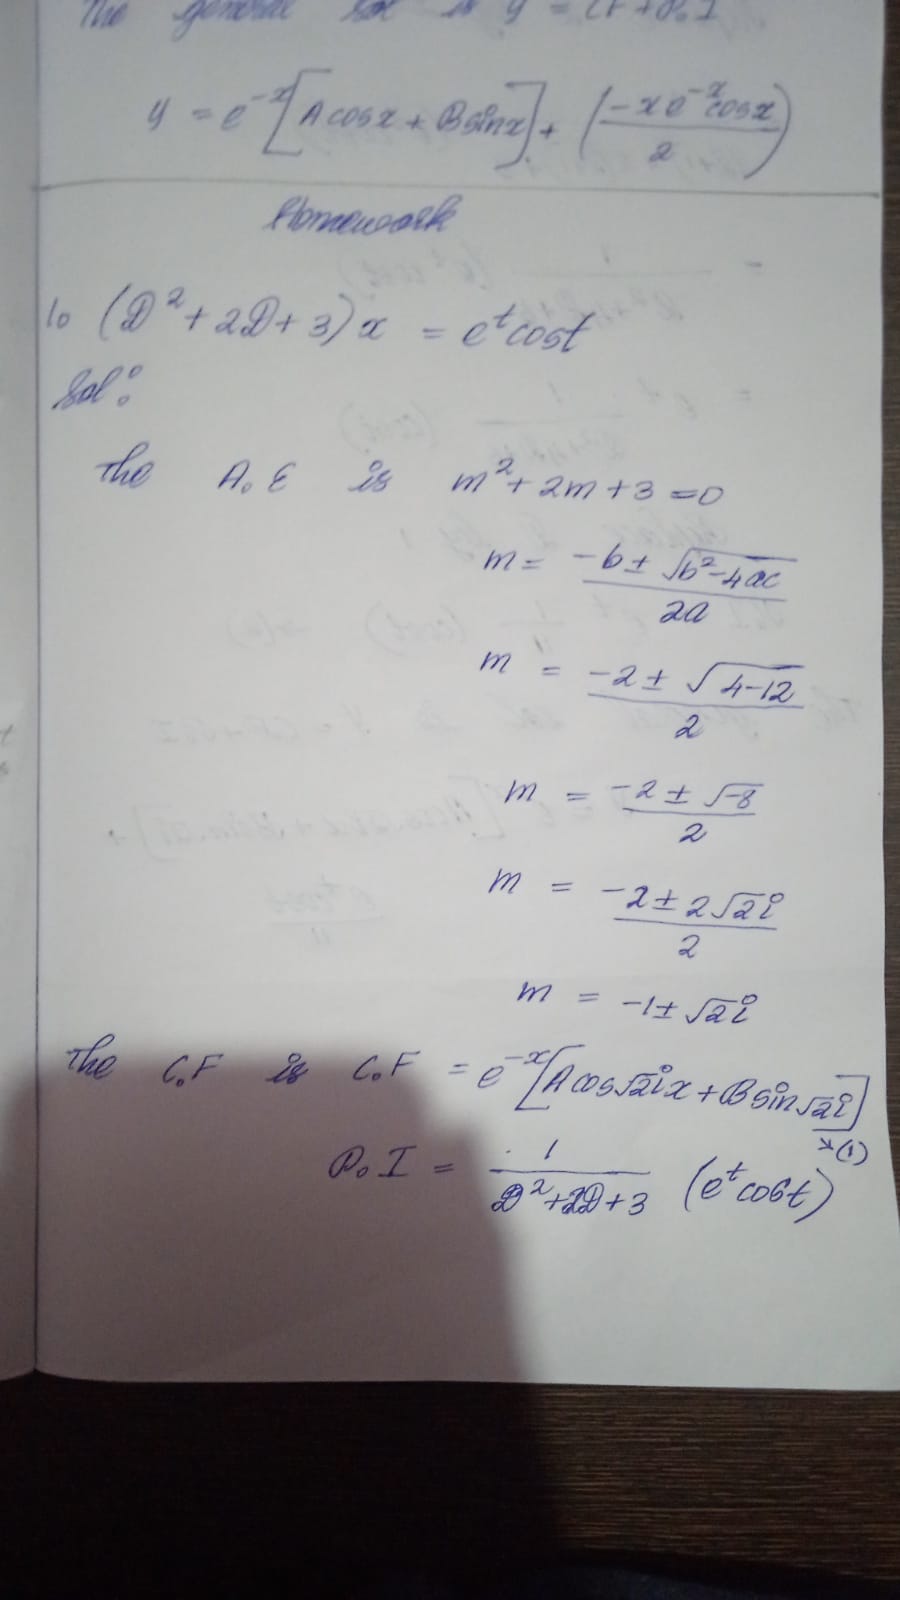 The general sol is y = CF + P.I
y = e^-x [A cosx + B sinx] + (-x e^-x cosx / 2)
Homework
1. (D² + 2D + 3) x = e^t cost
Sol:
The A.E is m² + 2m + 3 = 0
m = -b ± √b²-4ac / 2a
m = -2 ± √4-12 / 2
m = -2 ± √-8 / 2
m = -2 ± 2√2i / 2
m = -1 ± √2i
The C.F is C.F = e^-x [A cos√2ix + B sin√2i]
→(1)
P.I = 1 / D²+2D+3 (e^t cost)